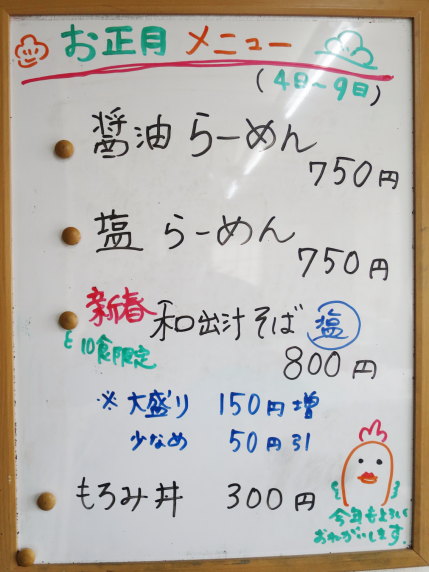 お正月 メニュー
(4日~9日)
醤油らーめん
750円
塩らーめん
750円
新春 和出汁そば 塩
10食限定
800円
※大盛り 150円増
少なめ 50円引
もろみ丼 300円
今年もよろしく
おねがいします